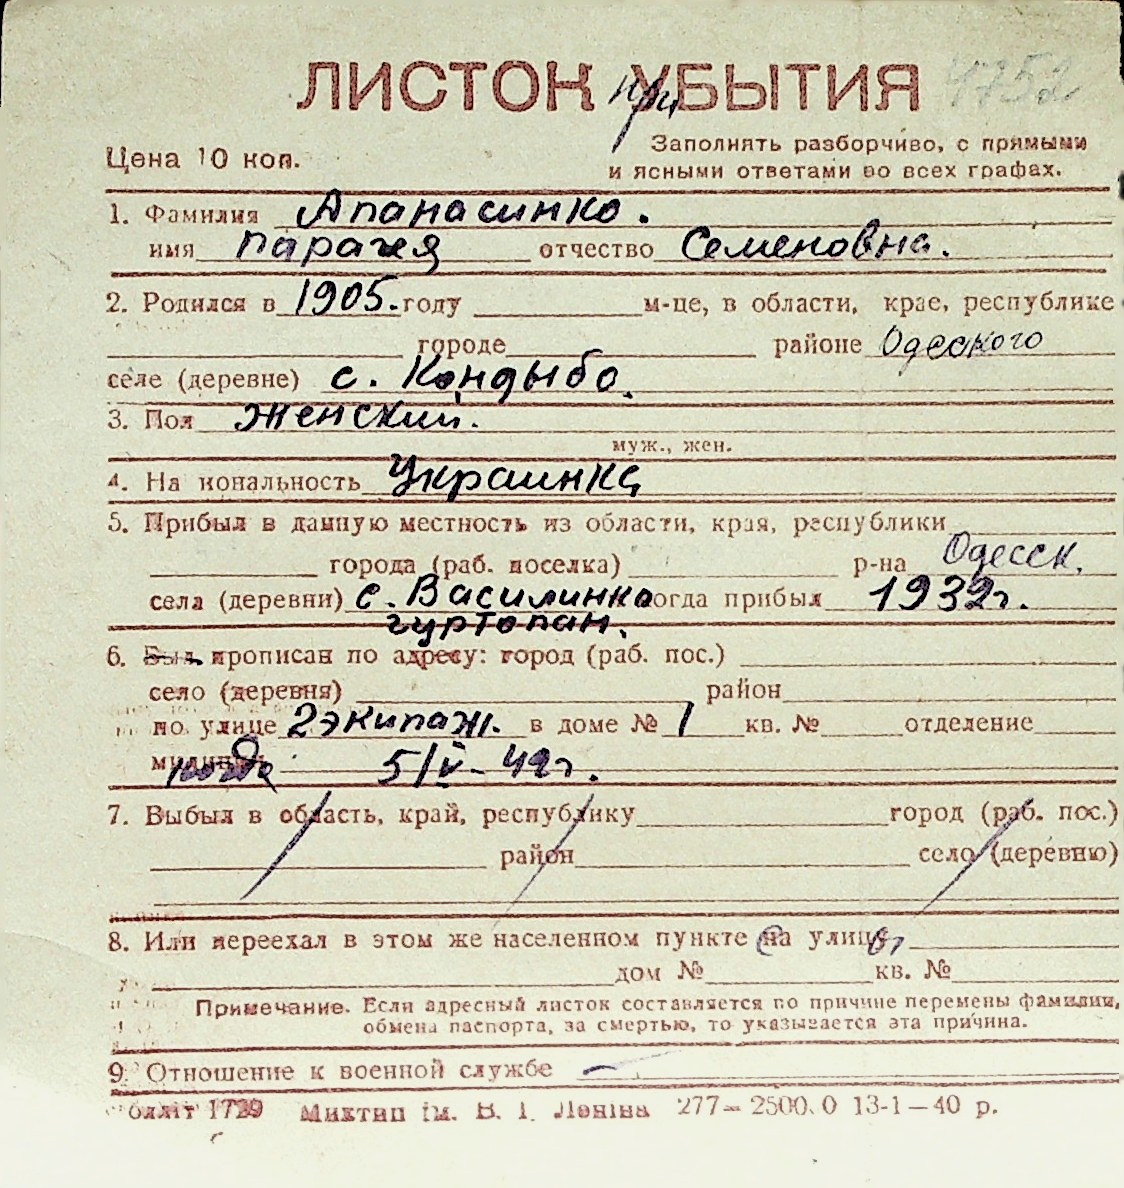 ЛИСТОК при УБЫТИЯ 4752
Цена 10 коп.
Заполнять разборчиво, с прямыми
и ясными ответами во всех графах.
1. Фамилия Апанасинко.
имя Парагея отчество Семеновна.
2. Родился в 1905. году м-це, в области, крае, республике
городе районе Одесского
селе (деревне) с. Кондыба.
3. Пол женский.
муж., жен.
4. На иональность Украинка
5. Прибыл в данную местность из области, края, республики
города (раб. поселка) р-на Одесск.
села (деревни) с. Василинко когда прибыл 1932г.
гуртопан.
6. Был прописан по адресу: город (раб. пос.)
село (деревня) район
по улице 2экипаж. в доме № 1 кв. № отделение
милиции когда 5/V-42г.
7. Выбыл в область, край, республику город (раб. пос.)
район село (деревню)
8. Или переехал в этом же населенном пункте на улицу
дом № кв. №
Примечание. Если адресный листок составляется по причине перемены фамилии,
обмена паспорта, за смертью, то указывается эта причина.
9. Отношение к военной службе —
Обллiт 1729 Миктип iм. В. I. Ленiна 277—2500.0 13-1—40 р.